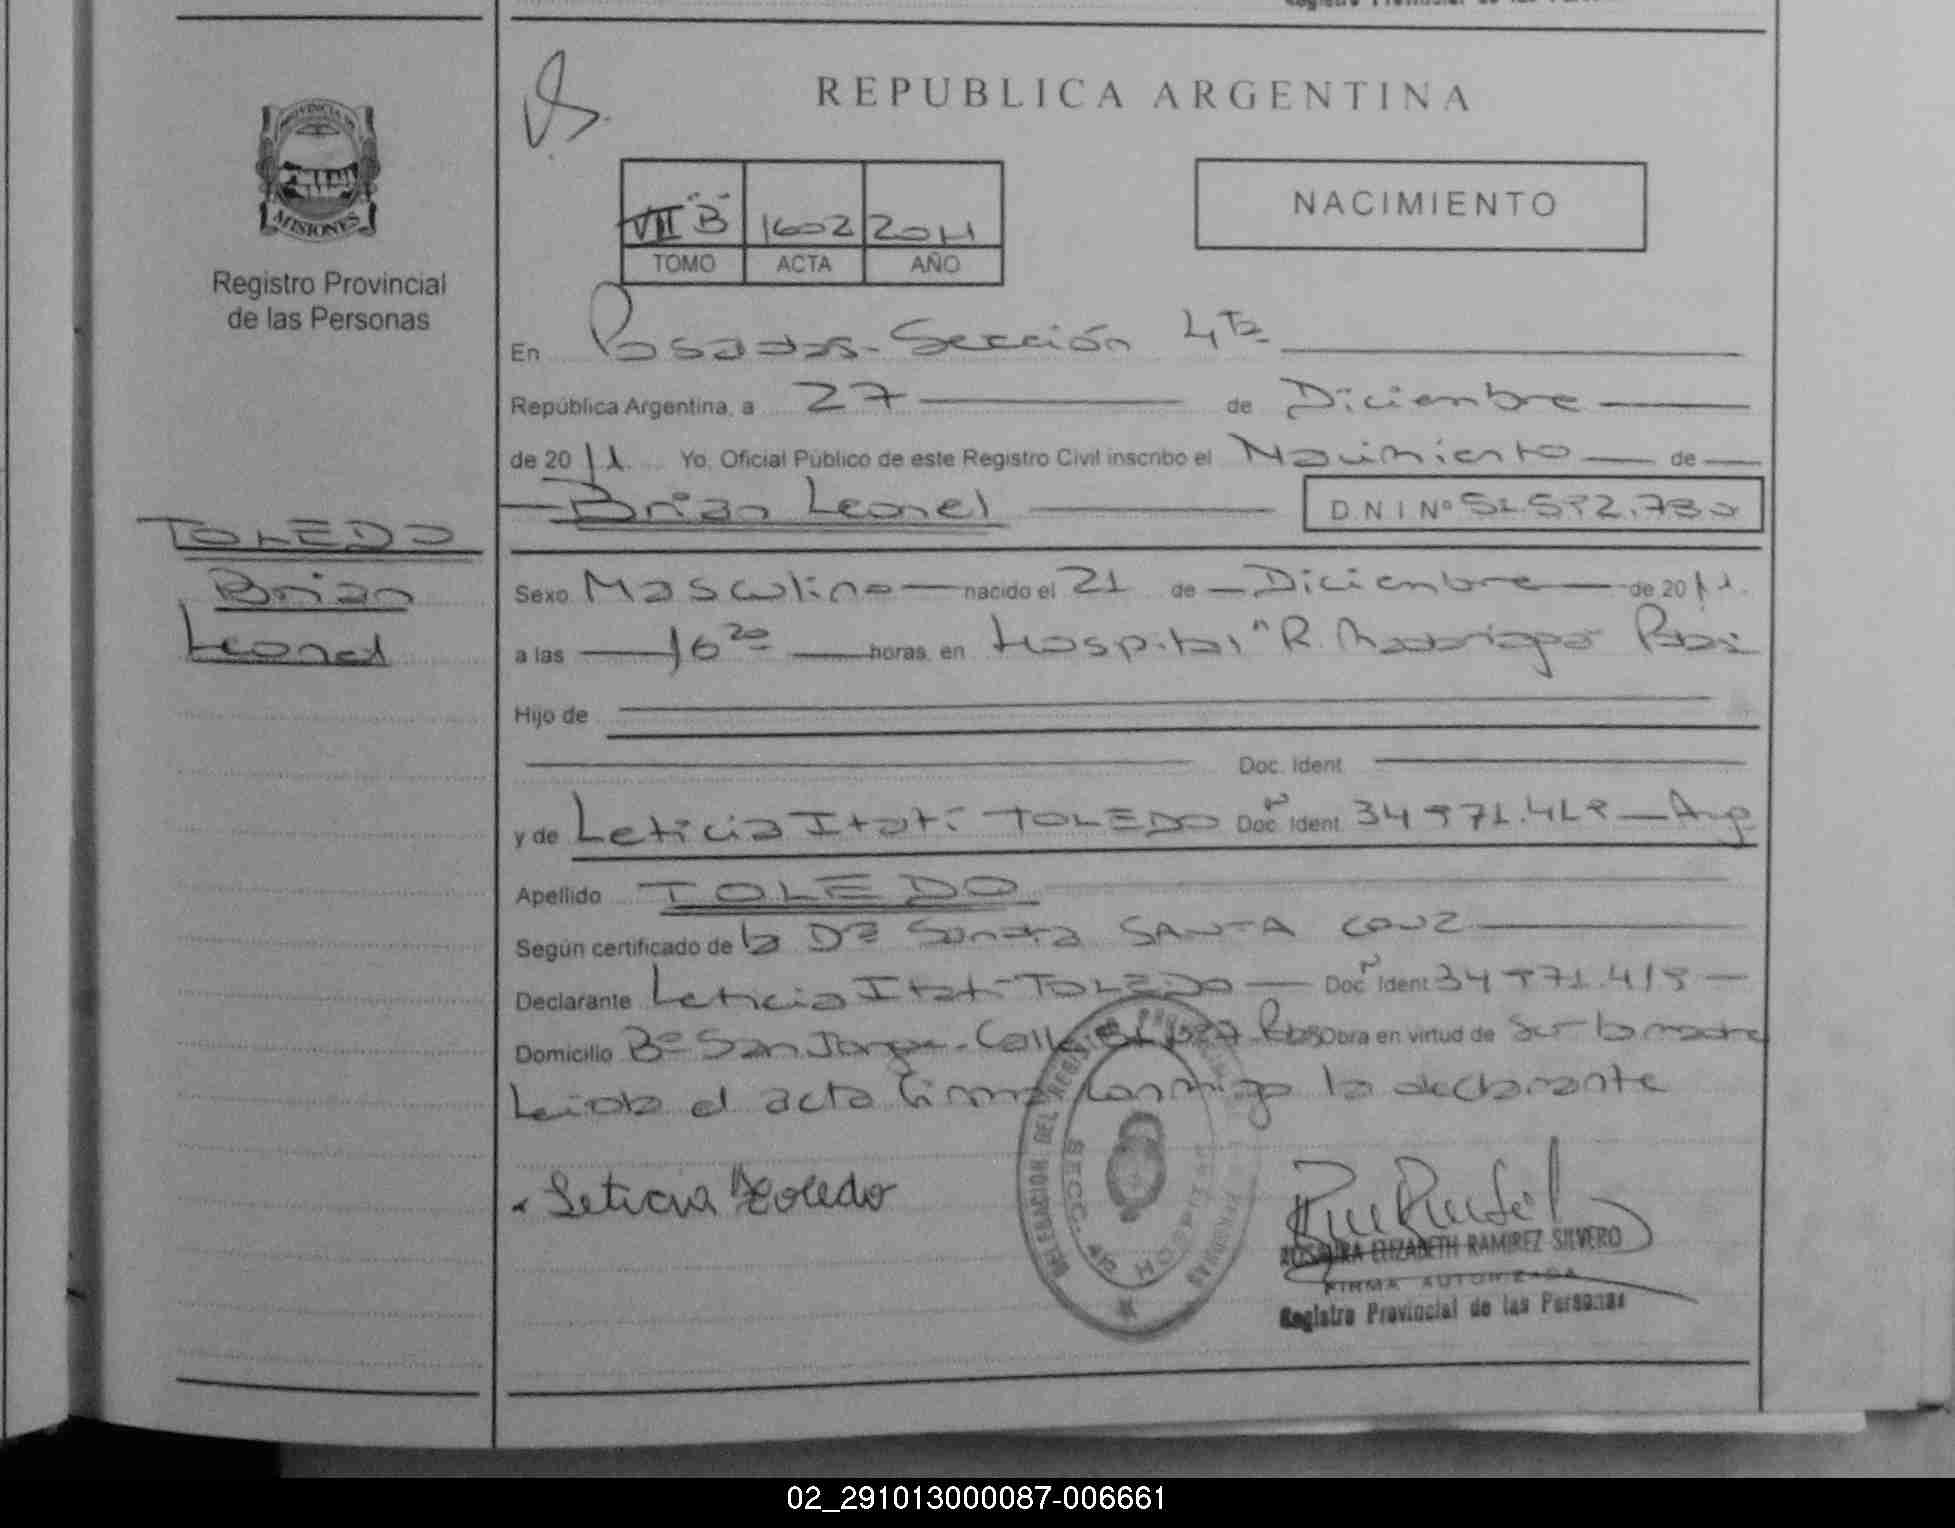 REPUBLICA ARGENTINA
PROVINCIA DE
MISIONES
Registro Provincial
de las Personas
VII "B" 1602 2011
TOMO ACTA AÑO
NACIMIENTO
En Posadas - Sección 4ta
República Argentina, a 27 de Diciembre
de 2011 Yo, Oficial Público de este Registro Civil inscribo el Nacimiento de
Brian Leonel D.N.I Nº
TOLEDO
Brian
Leonel
Sexo Masculino nacido el 21 de Diciembre de 2011.
a las 16 20 horas, en Hospital "R. Madariaga"
Hijo de
Doc. Ident.
y de Leticia Itatí TOLEDO Doc. Ident. Arg
Apellido TOLEDO
Según certificado de la Dra Sandra SANTA CRUZ
Declarante Leticia Itatí TOLEDO Doc. Ident.
Domicilio Bº San Jorge - Calle obra en virtud de Ser la madre
Leída el acta firma conmigo la declarante
Leticia Toledo
DELEGACION DEL REGISTRO PROVINCIAL DE LAS PERSONAS
SECC. 4ta HOSPITAL
ROSAURA ELIZABETH RAMIREZ SILVERO
FIRMA AUTORIZADA
Registro Provincial de las Personas
02_291013000087-006661